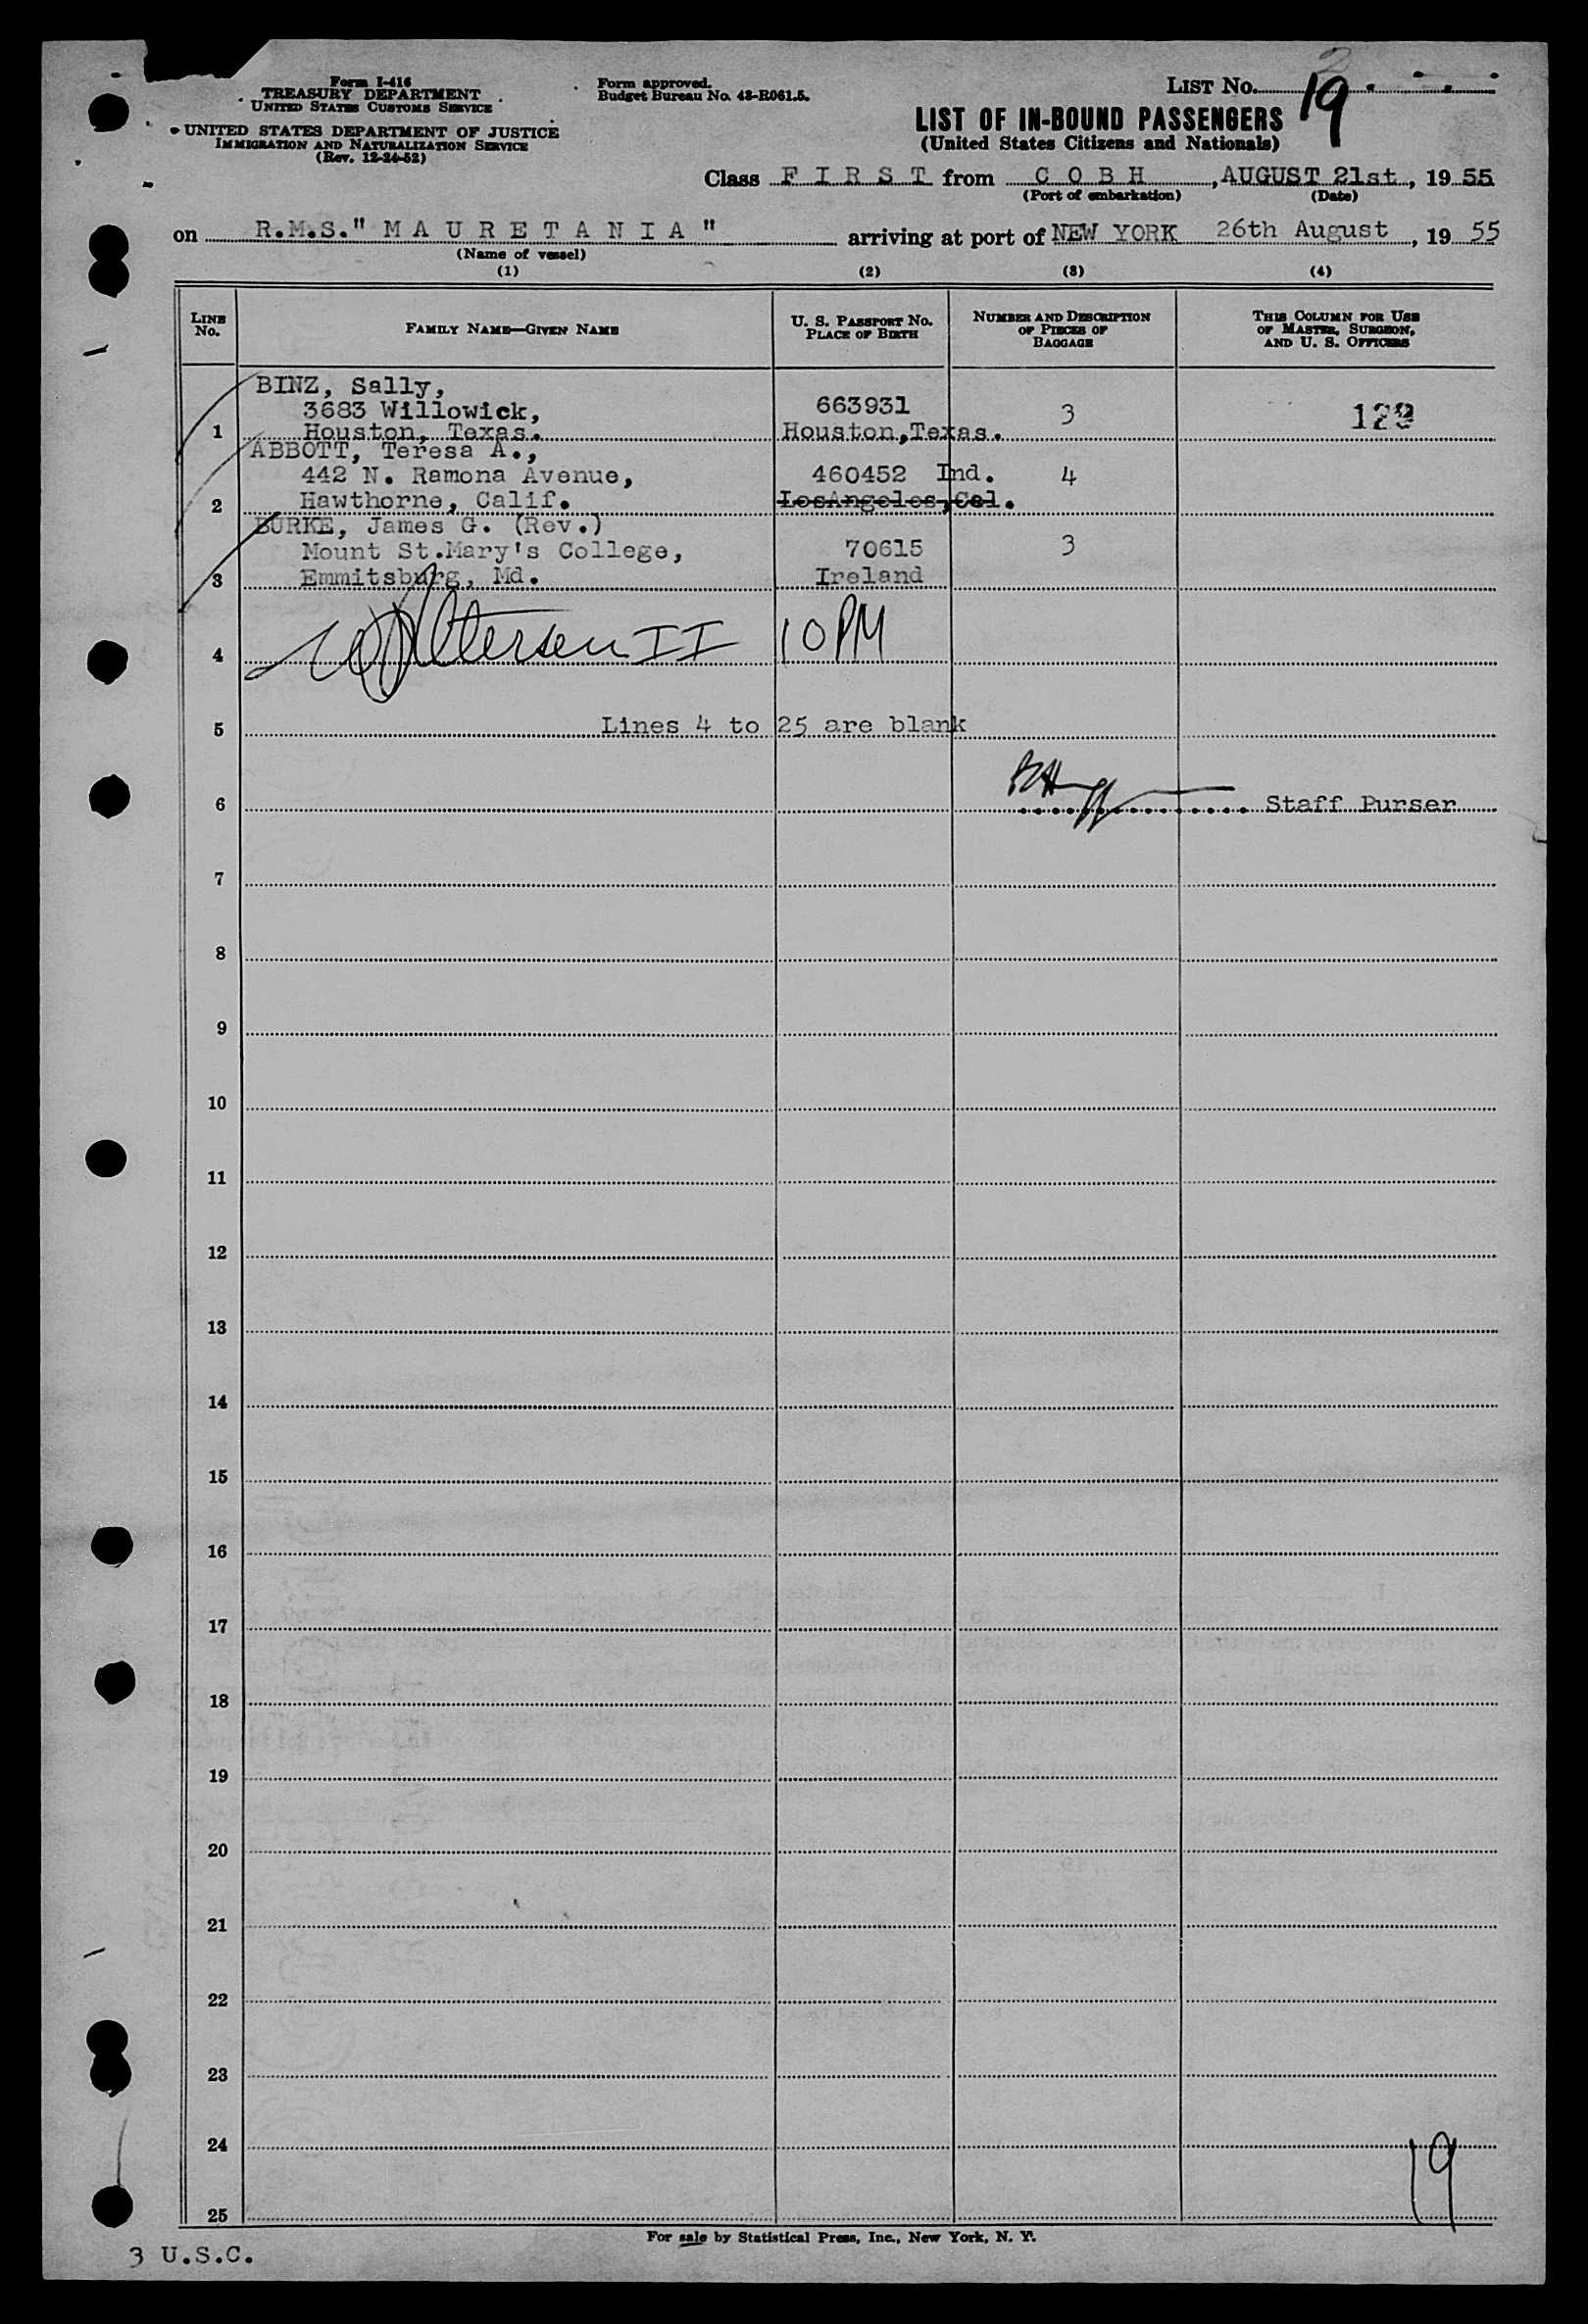 Form I-416
TREASURY DEPARTMENT
UNITED STATES CUSTOMS SERVICE
UNITED STATES DEPARTMENT OF JUSTICE
IMMIGRATION AND NATURALIZATION SERVICE
(Rev. 12-24-52)
Form approved.
Budget Bureau No. 43-R061.5.
LIST No. 19
LIST OF IN-BOUND PASSENGERS
(United States Citizens and Nationals)
Class F I R S T from C O B H, AUGUST 21st, 19 55
(Port of embarkation) (Date)
on R.M.S." M A U R E T A N I A " arriving at port of NEW YORK 26th August, 19 55
(Name of vessel)
(1) (2) (3) (4)
LINE No. FAMILY NAME—GIVEN NAME U. S. PASSPORT No. PLACE OF BIRTH NUMBER AND DESCRIPTION OF PIECES OF BAGGAGE THIS COLUMN FOR USE OF MASTER, SURGEON, AND U. S. OFFICERS
BINZ, Sally,
3683 Willowick, 663931 3 129
1 Houston, Texas. Houston,Texas.
ABBOTT, Teresa A.,
442 N. Ramona Avenue, 460452 Ind. 4
2 Hawthorne, Calif. LosAngeles,Cal.
BURKE, James G. (Rev.)
Mount St.Mary's College, 70615 3
3 Emmitsburg, Md. Ireland
4 II 10 PM
5 Lines 4 to 25 are blank
6 Staff Purser
7
8
9
10
11
12
13
14
15
16
17
18
19
20
21
22
23
24
19
25
For sale by Statistical Press, Inc., New York, N. Y.
3 U.S.C.